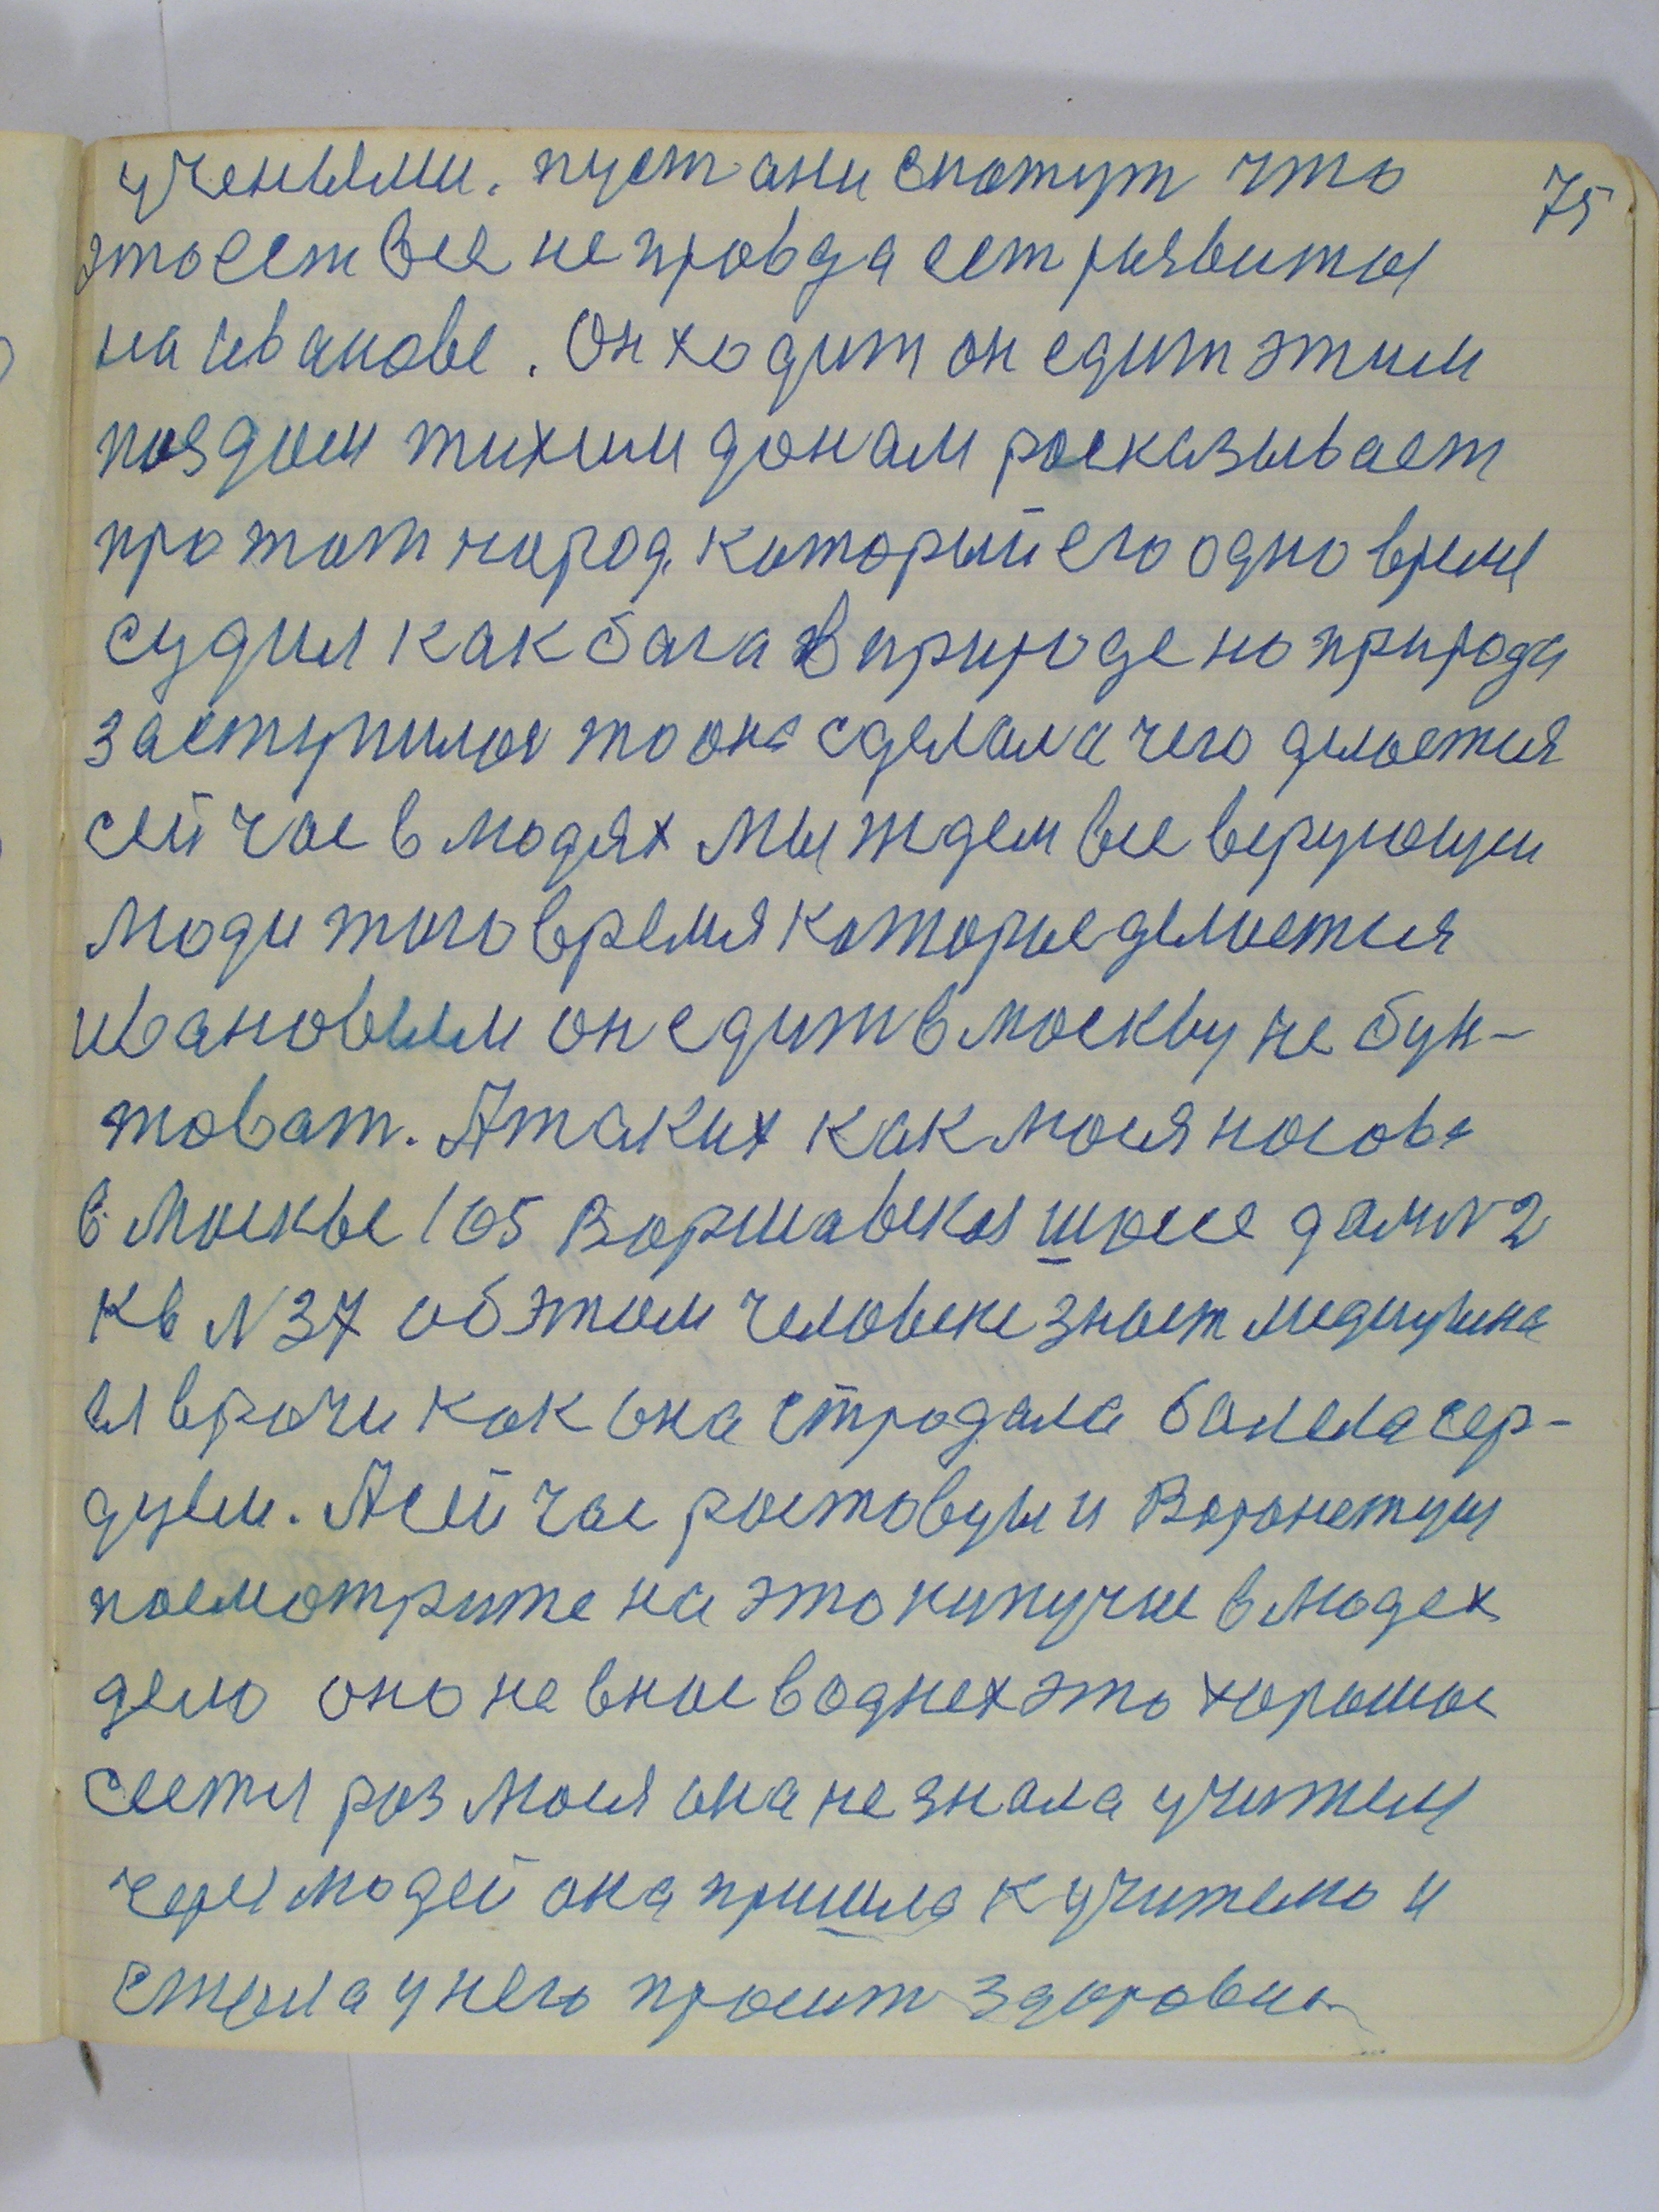 учеными. пуст они скажут что 75
это ест все неправда ест развиты
на иванове. Он ходит он едит этим
поядом тихим донам росказывает
про тот народ который его одно время
судил как бага в природе но природа
заступилас то она сделала чего делоется
сейчас в людях мы ждем все верующии
люди того время которое делоется
ивановым он едит в москву не бун-
товат. А таких как мося носова
в Москве 105 Воршавская шосе дом N 2
кв N 37 об этом человеке знает медицина
и врочи как она стродала балела сер-
дцем. А сейчас ростовцы и Воронежцы
посмотрите на это кипучие в людех
дело оно не внас в однех это хорошое
сест раз мося она не знала учителя
через людей она пришла к учителю и
стала у него просит здоровия